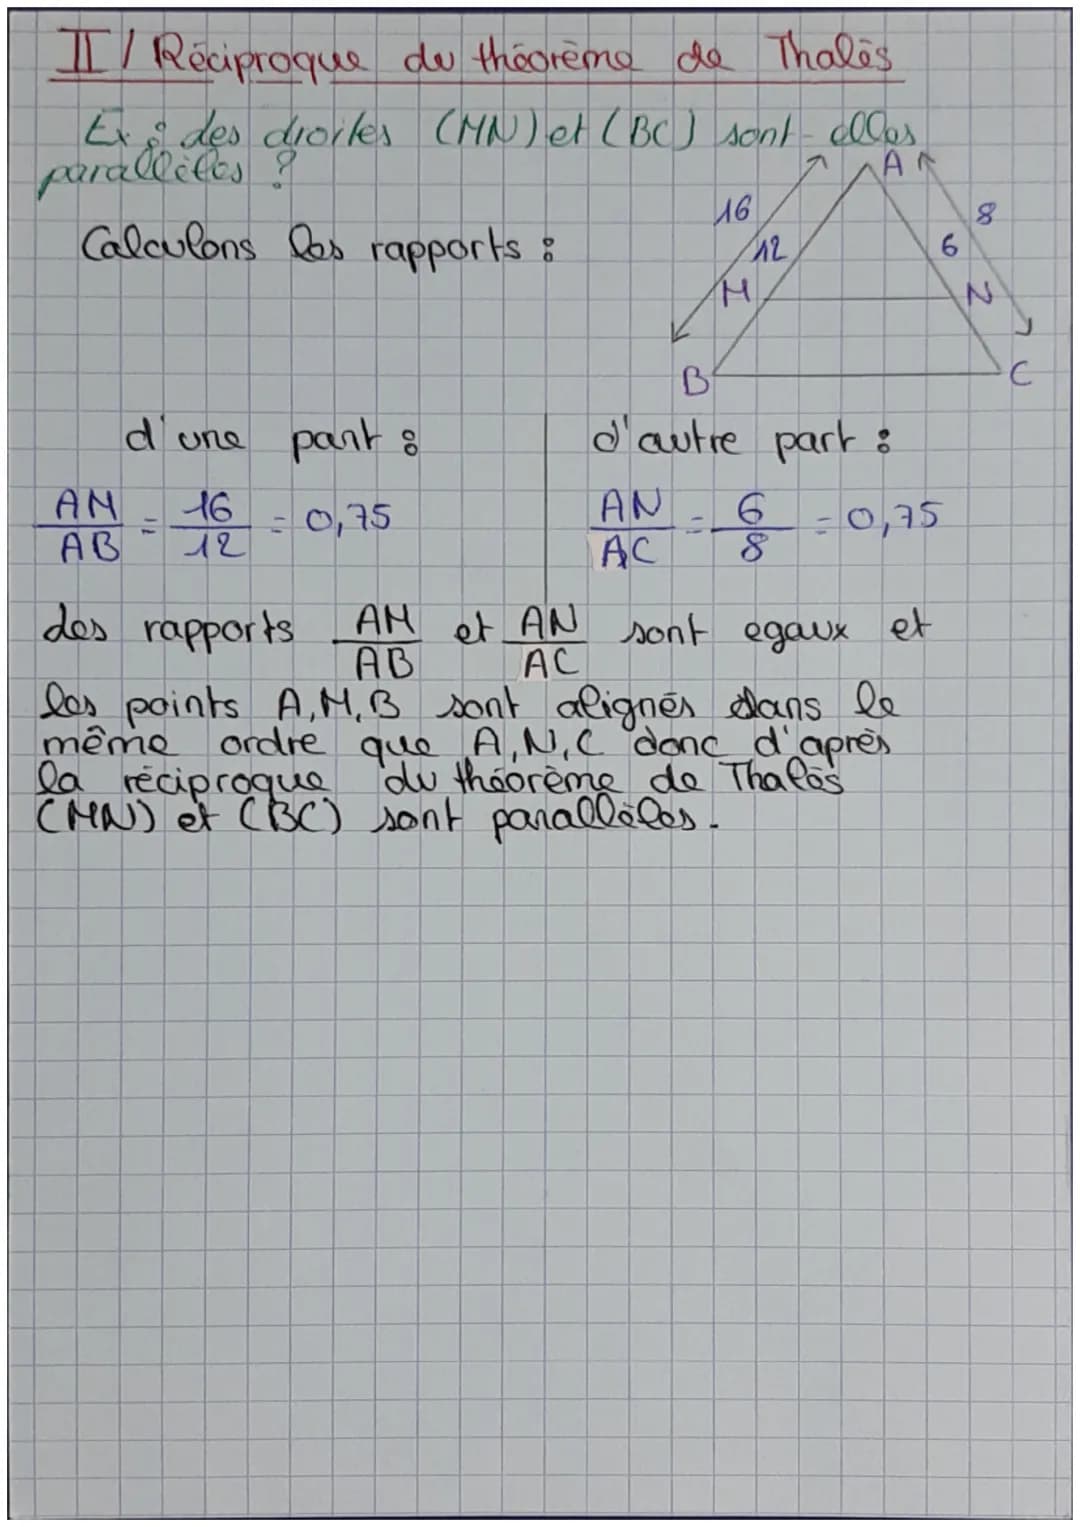 II / Réciproque du théorème de Thalès
Ex : des droites (MN) et (BC) sont-elles
parallèles ?
Calculons les rapports :
A
16
8
12
6
M
N
B
C
d'une part :
d'autre part :
AM/AB = 16/12 = 0,75
AN/AC = 6/8 = 0,75
des rapports AM/AB et AN/AC sont egaux et
les points A, M, B sont alignés dans le
même ordre que A, N, C donc d'après
la réciproque du théorème de Thalès
(MN) et (BC) sont parallèles.